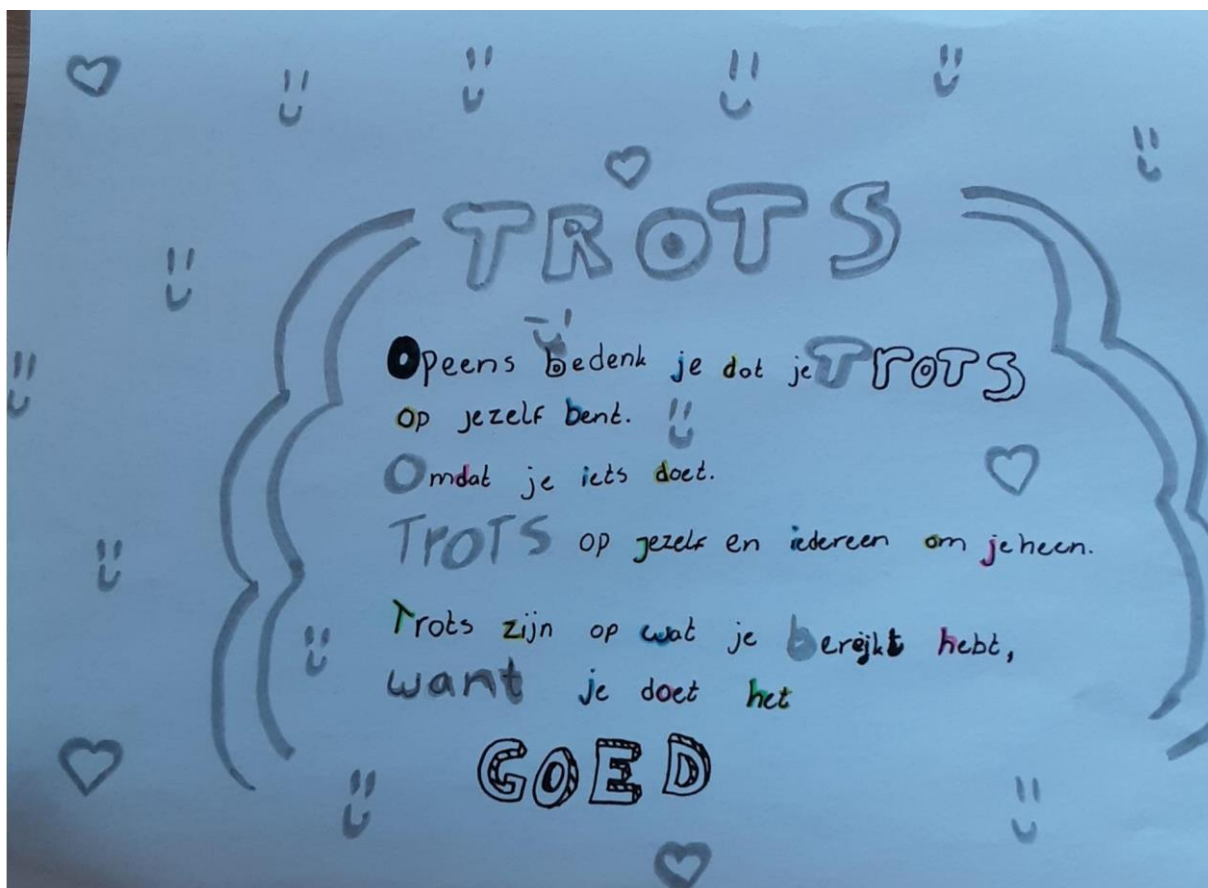 TROTS
Opeens bedenk je dat je TROTS
op jezelf bent.
Omdat je iets doet.
TROTS op jezelf en iedereen om je heen.
Trots zijn op wat je bereikt hebt,
want je doet het
GOED